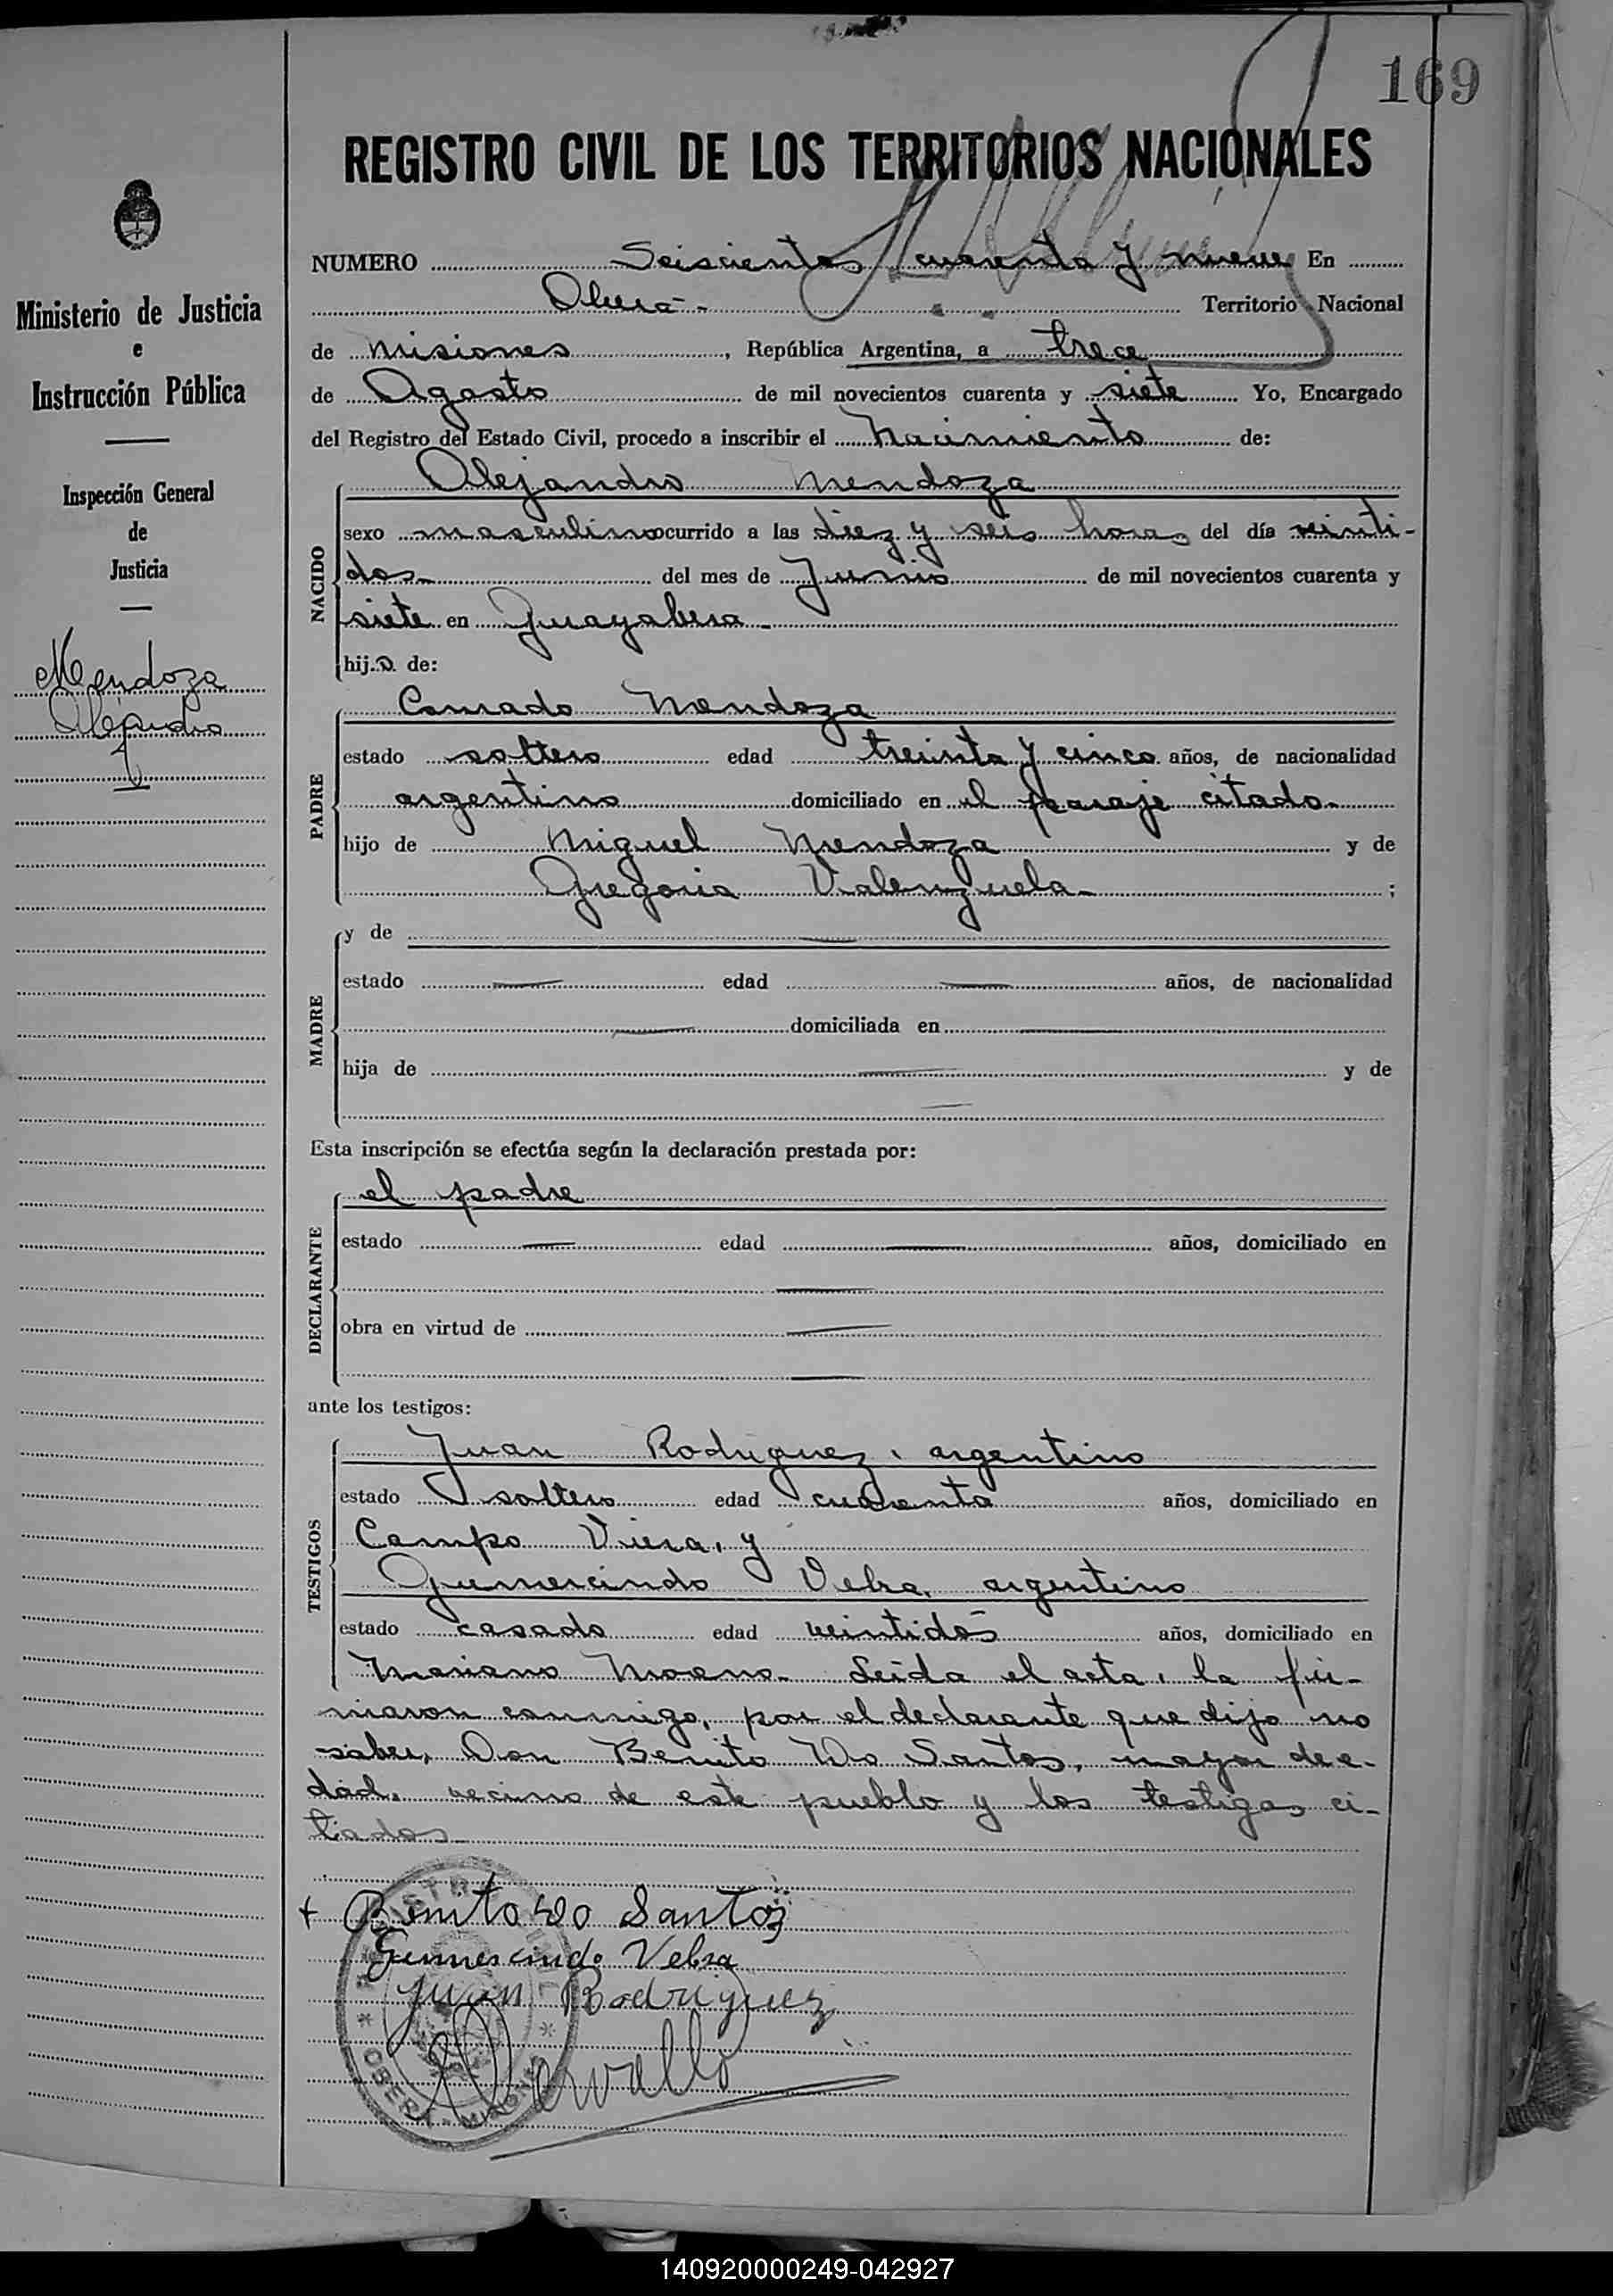 169
REGISTRO CIVIL DE LOS TERRITORIOS NACIONALES
Ministerio de Justicia
e
Instrucción Pública
Inspección General
de
Justicia
Mendoza
Alejandro
NUMERO Seiscientos cuarenta y nueve En
Oberá - Territorio Nacional
de Misiones, República Argentina, a trece
de Agosto de mil novecientos cuarenta y siete Yo, Encargado
del Registro del Estado Civil, procedo a inscribir el nacimiento de:
NACIDO
Alejandro Mendoza
sexo masculino ocurrido a las diez y seis horas del día veinti-
dos - del mes de Junio de mil novecientos cuarenta y
siete en Guayabera -
hijo de:
PADRE
Conrado Mendoza
estado soltero edad treinta y cinco años, de nacionalidad
argentino domiciliado en el paraje citado -
hijo de Miguel Mendoza y de
Gregoria Valenzuela - ;
MADRE
y de —
estado — edad — años, de nacionalidad
— domiciliada en —
hija de — y de
—
Esta inscripción se efectúa según la declaración prestada por:
DECLARANTE
el padre
estado — edad — años, domiciliado en
—
obra en virtud de —
—
ante los testigos:
TESTIGOS
Juan Rodriguez, argentino
estado soltero edad cuarenta años, domiciliado en
Campo Viera, y
Gumercindo Velza, argentino
estado casado edad veintidós años, domiciliado en
Mariano Moreno - Leída el acta, la fir-
maron conmigo, por el declarante que dijo no
saber, Don Benito Do Santos, mayor de e-
dad, vecino de este pueblo y los testigos ci-
tados -
+ Benito Do Santos
Gumercindo Velza
Juan Rodriguez
OBERA - MISIONES
140920000249-042927